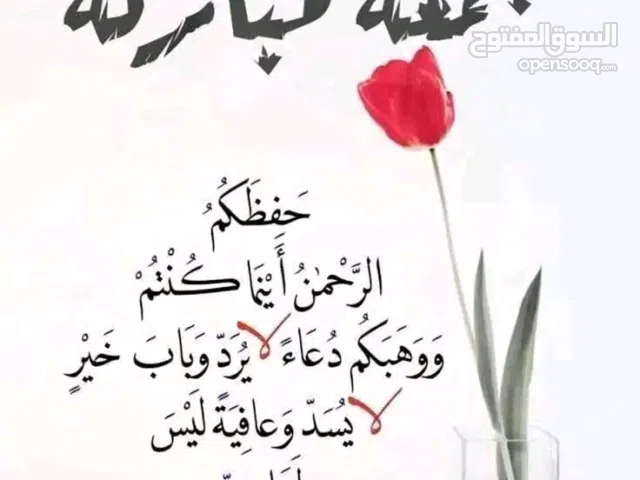 جمعة مباركة
السوق المفتوح
opensooq.com
حَفِظَكُمُ
الرَّحْمٰنُ أَيْنَمَا كُنْتُمْ
وَوَهَبَكُم دُعَاءً لَا يُرَدّ وَبَابَ خَيْرٍ
لَا يُسَدّ وَعافِيَةً لَيْسَ